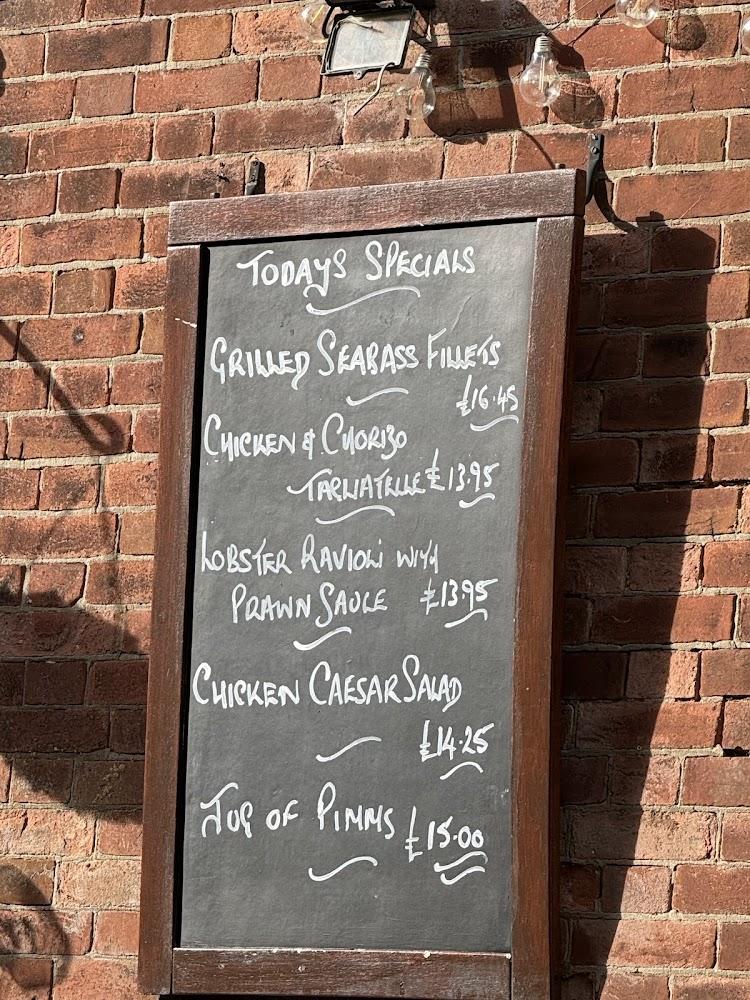 TODAYS SPECIALS
GRILLED SEABASS FILLETS
£16.45
CHICKEN & CHORIZO
TAGLIATELLE £13.95
LOBSTER RAVIOLI WITH
PRAWN SAUCE £13.95
CHICKEN CAESAR SALAD
£14.25
JUG OF PIMMS £15.00